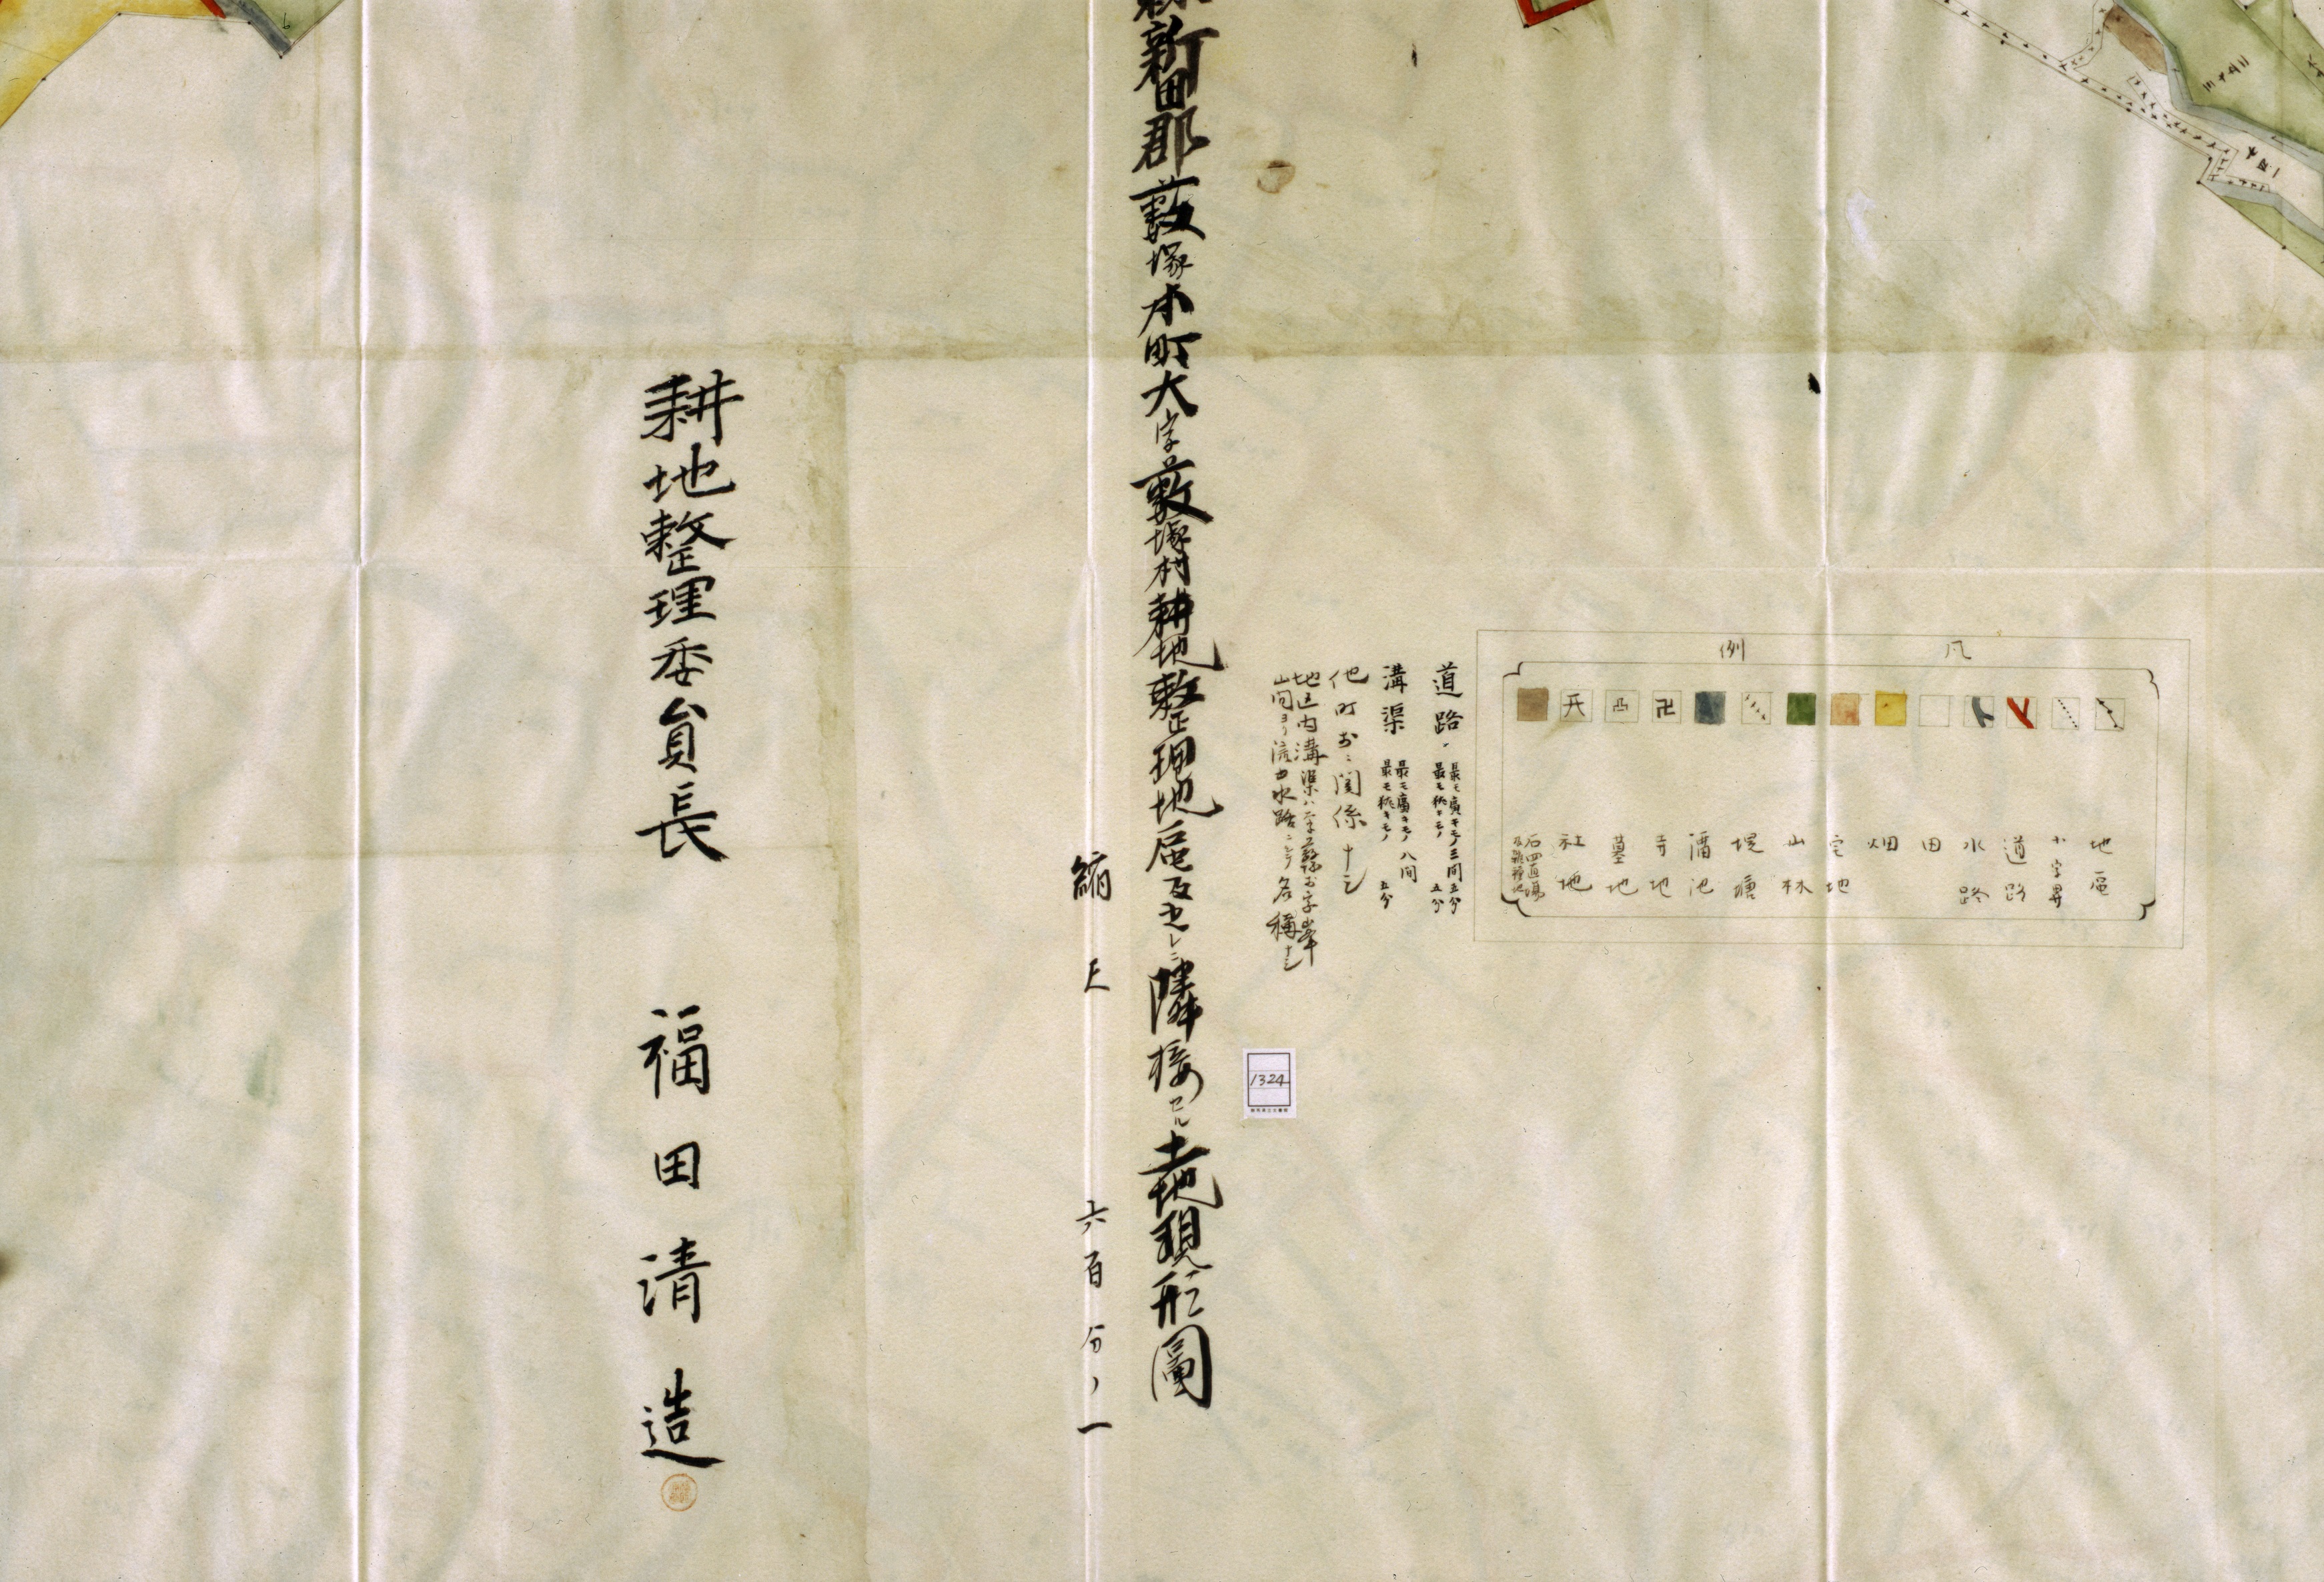 凡例
地區
小字界
道路
水路
田
畑
宅地
山林
堤塘
溜池
寺地
墓地
社地
石四直場
及雜種地
道路 最モ廣キモノ三間五分
最モ狹キモノ 五分
溝渠 最モ廣キモノ 八間
最モ狹キモノ 五分
他町村ニ関係ナシ
地区内溝渠ハ大字藪塚小字
山間ヨリ流出水路ニシテ名稱ナシ
新田郡藪塚本町大字藪塚村耕地整理地區及之レニ隣接セル土地現形圖
縮尺 六百分ノ一
耕地整理委員長 福田清造
1324
三十四